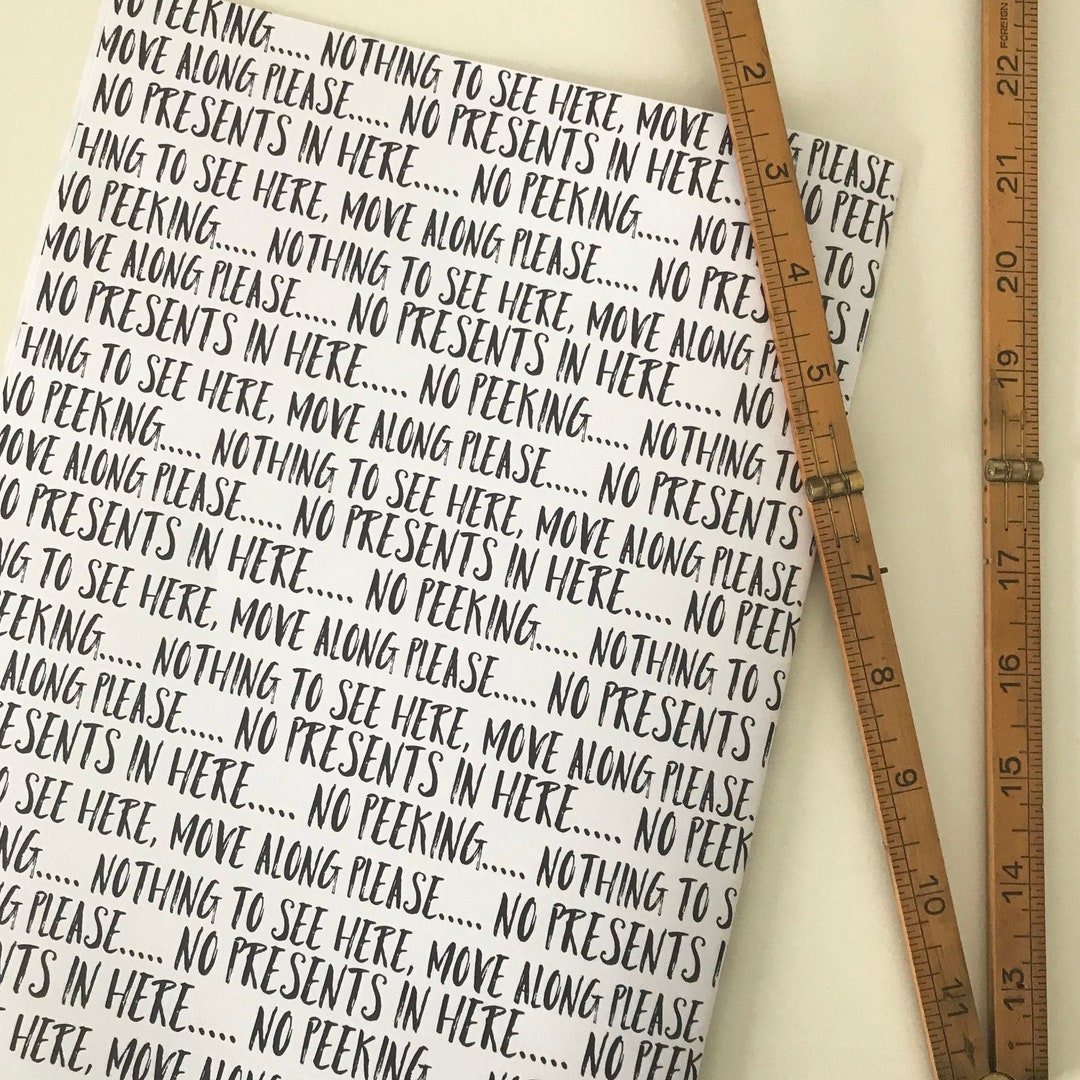 NO PEEKING..... NOTHING TO SEE HERE, MOVE A G PLEASE..
MOVE ALONG PLEASE..... NO PRESENTS IN HERE... NO PEEK
NO PRESENTS IN HERE..... NO PEEKING..... NOTH TO S
THING TO SEE HERE, MOVE ALONG PLEASE..... NO PRES S I
NO PEEKING..... NOTHING TO SEE HERE, MOVE ALONG PLE E.
MOVE ALONG PLEASE..... NO PRESENTS IN HERE..... NO
NO PRESENTS IN HERE..... NO PEEKING..... NOTHING TO
THING TO SEE HERE, MOVE ALONG PLEASE..... NO PRESENTS I
NO PEEKING..... NOTHING TO SEE HERE, MOVE ALONG PLEASE.
MOVE ALONG PLEASE..... NO PRESENTS IN HERE..... NO PEEK
NO PRESENTS IN HERE..... NO PEEKING..... NOTHING TO S
NG TO SEE HERE, MOVE ALONG PLEASE..... NO PRESENTS I
EEKING..... NOTHING TO SEE HERE, MOVE ALONG PLEASE.
ALONG PLEASE..... NO PRESENTS IN HERE..... NO PEEK
ESENTS IN HERE..... NO PEEKING..... NOTHING TO S
O SEE HERE, MOVE ALONG PLEASE..... NO PRESENTS I
NG..... NOTHING TO SEE HERE, MOVE ALONG PLEASE.
G PLEASE..... NO PRESENTS IN HERE..... NO PEEK
NTS IN HERE..... NO PEEKING.....
HERE, MOVE ALONG
2 3 4 5 7 8 9 10 11
FOREIGN
22 21 20 19 17 16 15 14 13